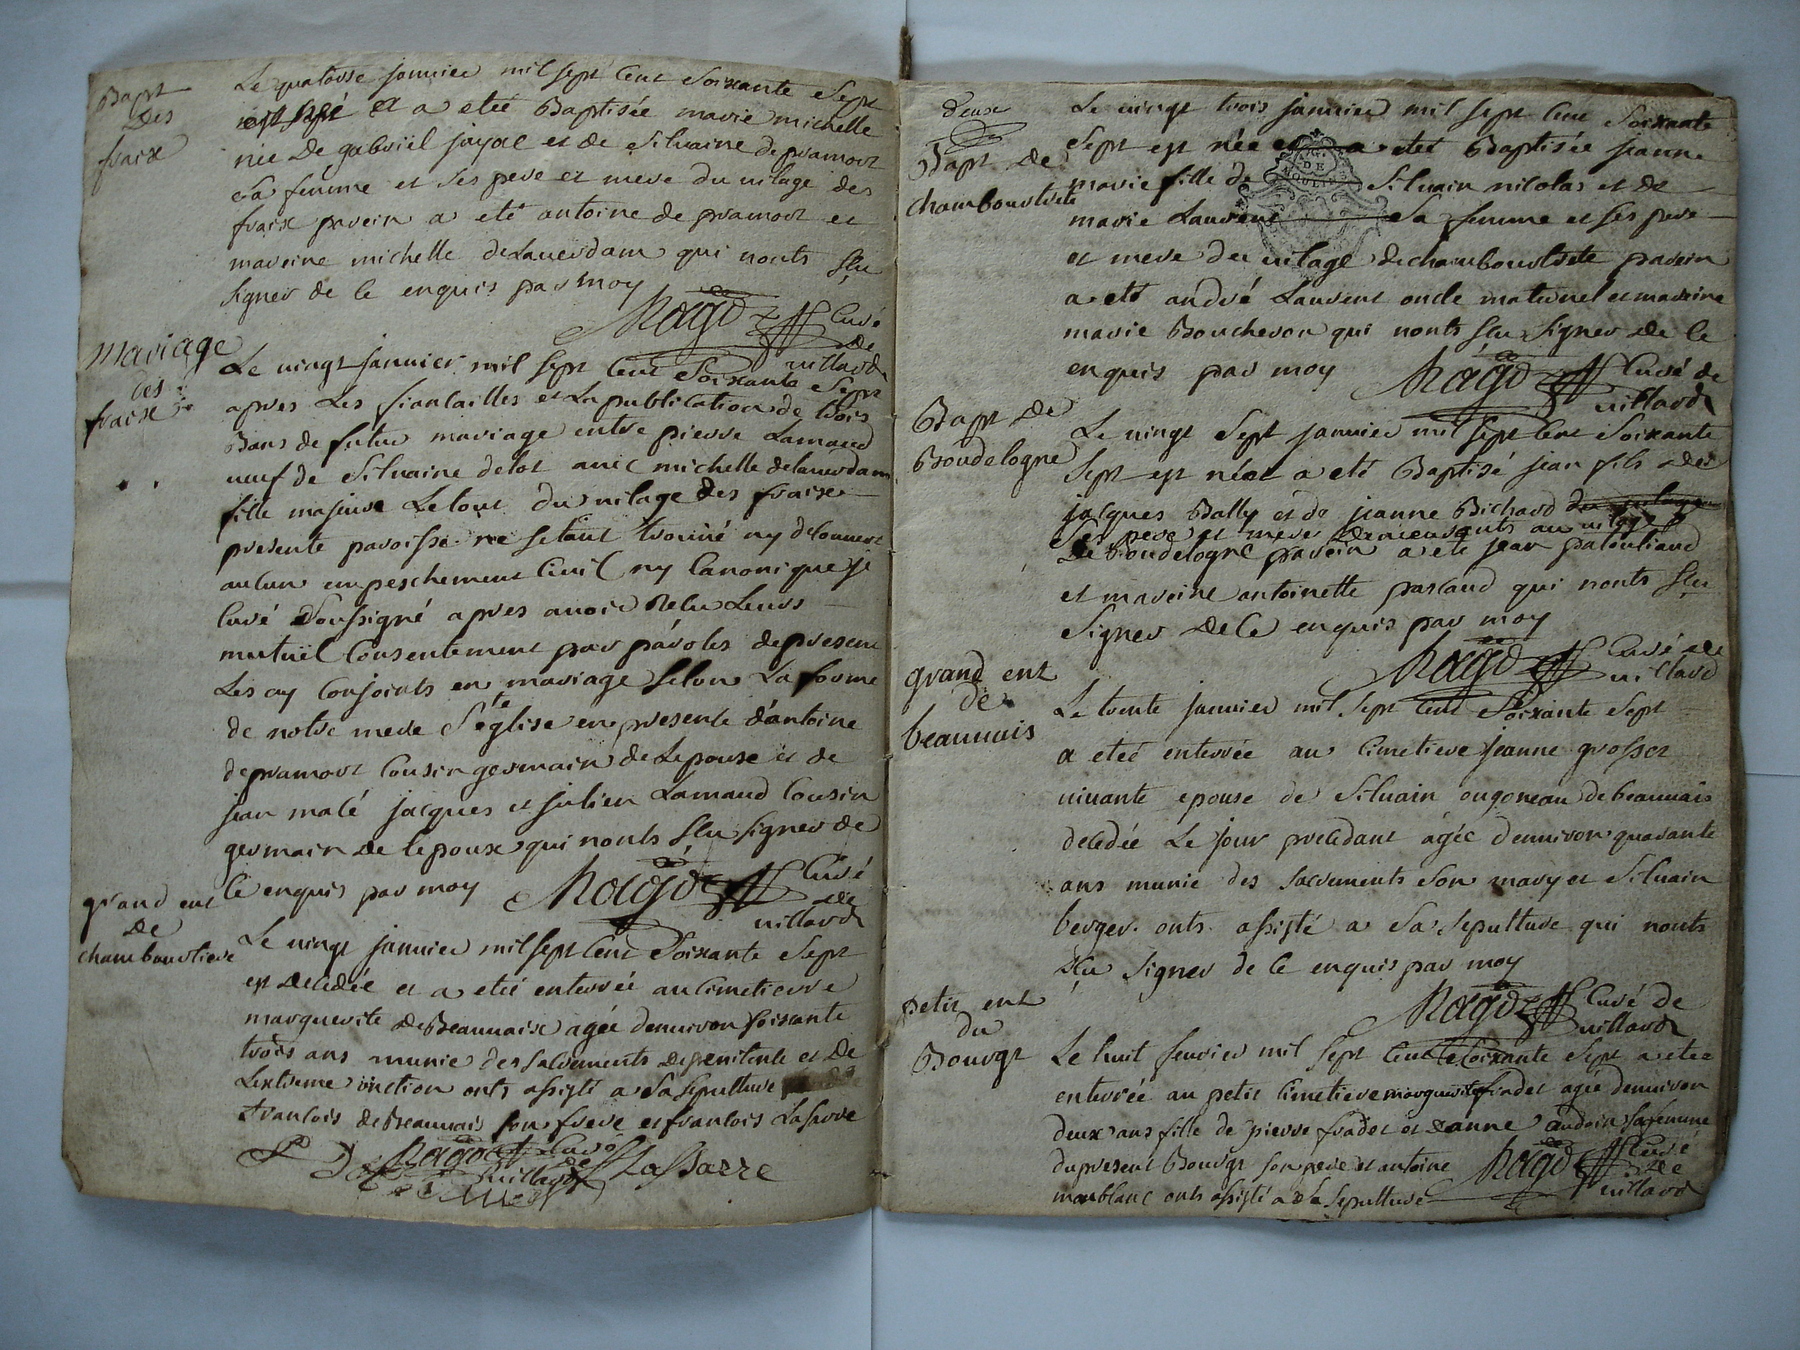 Bapt
Des
fraix
Le quatorse janvier mil sept cent soixante sept
et a eteé Baptisée marie michelle
née De gabriil jayoc et de Silvaine depramort
sa femme et ses pere et mere du vilage des
fraix parein a eté antoine de pramort et
mareine michelle delaverdam qui nonts sçu
signer de ce enquis par moy
Curé
de
villard
mariage
des
fraise
Le vingt janvier mil sept cent Soixante Sept
apres Les fiancailles et La publication de trois
Bans de futur mariage entre pierre Lamaud
veuf de Silvaine delot avec michelle delaverdam
fille majeure Le tout du vilage des fraise
presente paroisse ne setant trouvé ny decouvert
aucun empeschement Civil ny Canonique je
curé Soussigné apres avoir Recu Leurs
mutüel Consentement par paroles depresent
Les ay Conjoints en mariage Selon La forme
de notre mere Ste église en presente d'antoine
depramort Cousin germain de Lepouse et de
jean malé jacques et julien Lamaud Cousin
germain de Lepoux qui nonts sçu signer de
Ce enquis par moy
Curé
de
villard
grand ent
De
chambourtiere
Le vingt janvier mil sept cent Soixante Sept
est decedée et a eteé enterrée au Cimetierre
marguerite de Beauvaix agée denviron soixante
trois ans munie des sacrements de penitente et de
Lextreme onction onts assisté a sa sepulture
francois de Beauvais son frere et francois Lasarre
Curé
de
villard
LaSarre
Deuse
Bapt de
chambourtiete
Le vingt trois janvier mil sept cent Soixante
Sept est née et a eteé Baptisée jeanne
marie fille de Silvain nicolas et de
marie Laurent sa femme et ses pere
et mere du vilage de chambourtiete parein
a eté andré Laurent oncle maternel et mareine
marie Boucheron qui nonts sçu signer de ce
enquis par moy
Curé de
villard
Bapt de
Boudelogne
Le vingt Sept janvier mil sept cent Soixante
Sept est né et a eté Baptisé jean fils des
jacques Bally et de jeanne Bichard du vilage
Ses pere et mere Demeurants au vilage
De Boudelogne parein a eté jean
et mareine antoinette parcaud qui nonts sçu
signer de Ce enquis par moy
Curé de
villard
grand ent
de
beauvais
Le trente janvier mil sept cent Soixante Sept
a eteé enterrée au Cimetiere jeanne grosset
vivante epouse de Silvain ougoneau de beauvais
decedée Le jour precedant agée denviron quarante
ans munie des sacrements son mary et Silvain
berger onts assisté a sa sepulture qui nonts
sçu signer de Ce enquis par moy
Curé de
villard
petit ent
du
Bourgt
Le huit fevrier mil sept cent Soixante Sept a eteé
enterrée au petit Cimetiere marguerite fradet agée denviron
deux ans fille de pierre fradet et deanne audoin sa femme
du present Bourgt son pere et antoine
monblanc onts assisté a sa sepulture
Curé
de
villard